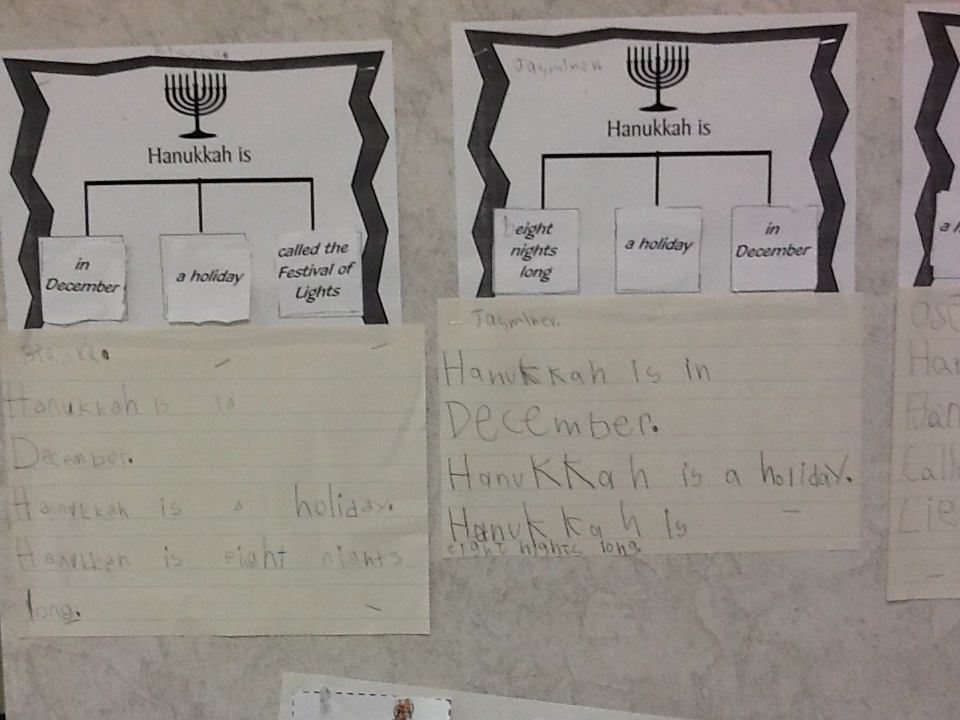 Hanukkah is
in
December
a holiday
called the
Festival of
Lights
Hanukkah is in
December.
Hanukkah is a holiday.
Hanukkah is eight nights
long.
Jasminer
Hanukkah is
eight
nights
long
a holiday
in
December
Jasminer.
Hanukkah is in
December.
Hanukkah is a holiday.
Hanukkah is
eight nights long.
Lie